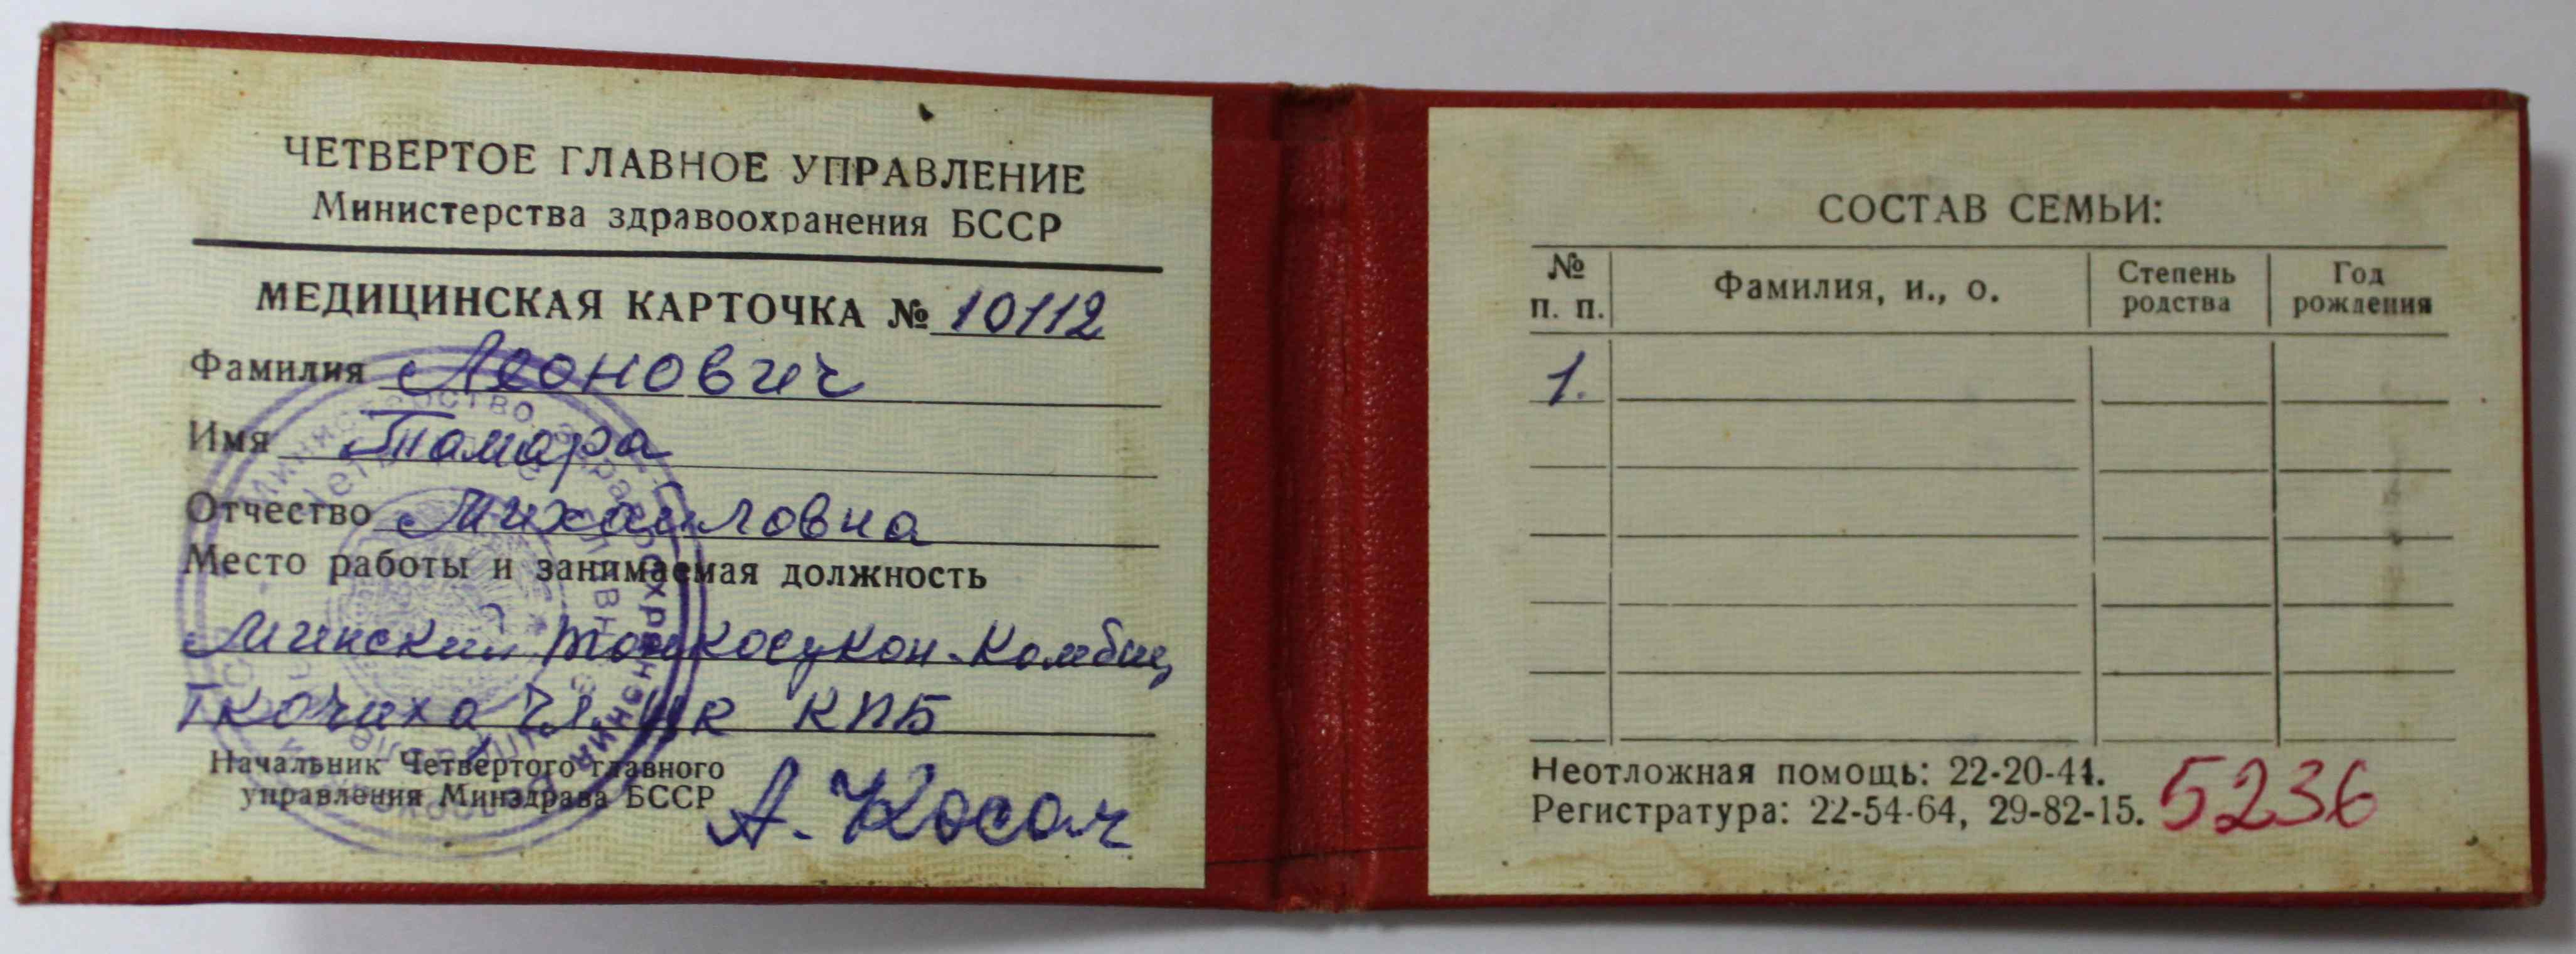 ЧЕТВЕРТОЕ ГЛАВНОЕ УПРАВЛЕНИЕ
Министерства здравоохранения БССР
МЕДИЦИНСКАЯ КАРТОЧКА № 10112
Фамилия Леонович
Имя Тамара
Отчество Михайловна
Место работы и занимаемая должность
Минский тонкосукон. комбин
Ткачиха чл. ЦК КПБ
Начальник Четвертого главного
управления Минздрава БССР
СОСТАВ СЕМЬИ:
№ п. п. Фамилия, и., о. Степень родства Год рождения
1.
Неотложная помощь: 22-20-41.
Регистратура: 22-54-64, 29-82-15. 5236